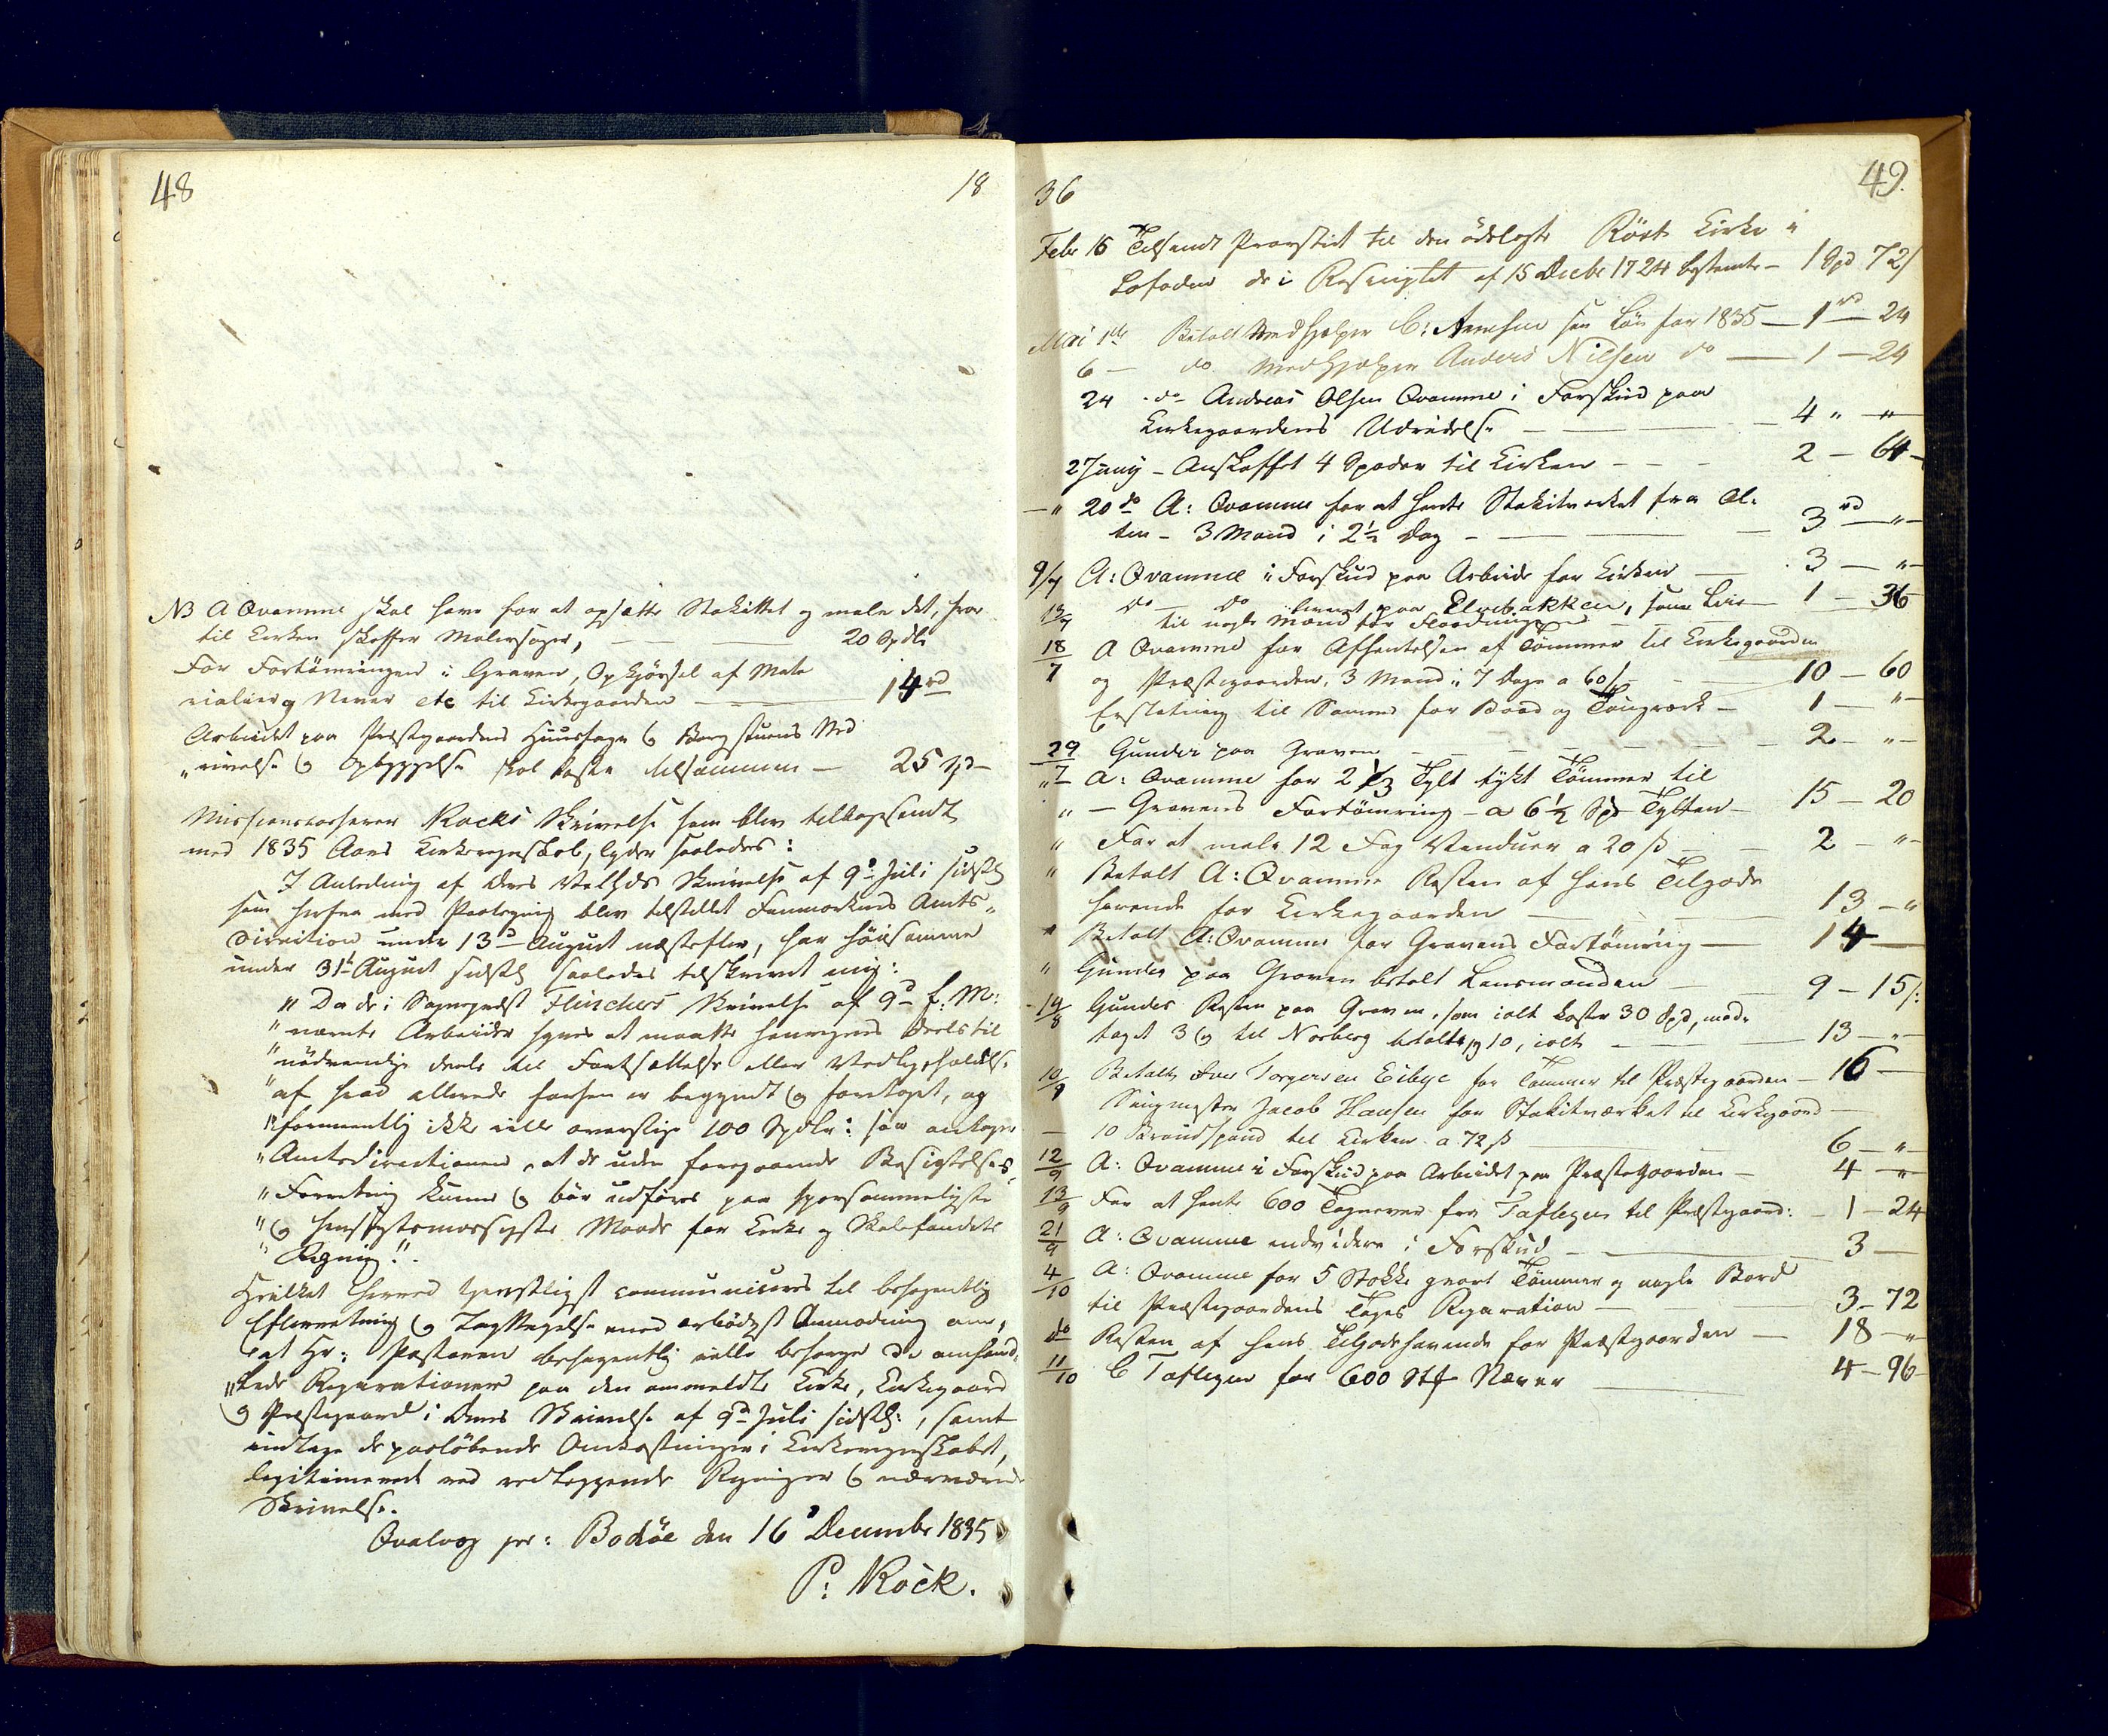 48
18
NB A Qvamme skal have for at opsætte Stakittet og male det, hvor
til Kirken skaffer Malersager, — 20 Spdlr
For Fortømringen i Graven, Opkjørsel af Mate
rialier og Næver etc til Kirkegaarden — 14 rd
Arbeidet paa Præstegaardens Huustage & Borgstuens Ned
"rivelse & Opbyggelse skal koste tilsammen — 25 Spd —
Missionscasserer Röcks Skrivelse som blev tilbagesendt
med 1835 Aars Kirkeregnskab, lyder saaledes:
I Anledning af Deres Velhds Skrivelse af 9de Juli sidstl
som herfra med Paategning blev tilstillet Finmarkens Amts„
Direction under 13de August næstefter, har höisamme
under 31te August sidstl saaledes tilskrevet mig:
"Da de i Sognepræst Flinckers Skrivelse af 9de f: M:
"nævnte Arbeider synes at maatte henregnes deels til
"nödvendige deels til Fortsættelse eller Vedligeholdelse
"af hvad allerede forhen er begyndt & foretaget, og
"formeentlig ikke ville overstige 100 Spdlr: saa antager
"Amtsdirectionen, at de uden foregaaende Besigtelses
"Forretning kunne & bör udföres paa sparsommeligste
"& hensigtsmæssigste Maade for Kirke og Skolefondets
"Regning".
Hvilket herved tjenstligst communiceres til behagentlig
Efterretning & Iagttagelse med ærbödigst Anmodning om,
at Hr: Pastoren behagentlig ville besørge de omhand„
"lede Reparationer paa den ommeldte Kirke, Kirkegaard
& Præstegaard i Deres Skrivelse af 9de Juli sidstl:, samt
indtage de paaløbende Omkostninger i Kirkeregnskabet,
legitimeret ved vedlæggende Regninger & nærværende
Skrivelse.
Qvalvog pr: Bodöe den 16de Decembr 1835
P: Röck.
36
49.
Febr 16 Tilsendt Provstiet til den ödelagte Röst Kirke i
Lofoden de i Rescriptet af 15 Decbr 1724 bestemte — 1 Spd 72/
Mai 1ste Betalt Medhjelper C: Arnesen sin Lön for 1835 — 1 rd — 24
6 — do Medhjelper Anders Nilsen do — 1 — 24
24 - do Andreas Olsen Qvamme i Forskud paa
Kirkegaardens Udvidelse — 4 " "
2 Juny - Anskaffet 4 Spader til Kirken - - - 2 — 64 -
" 20 do A: Qvamme for at hente Stakitværket fra Al„
ten — 3 Mand i 2½ Dag — 3 rd "
9/7 A: Qvamme i Forskud paa Arbeide for Kirken — 3 — "
13/7 do do leveret paa Elvebakken, som Leie 1 — 36
til nogle Mænd for Flaadningen
18/7 A Qvamme for Afhentelsen af Tømmer til Kirkegaarden
og Præstegaarden, 3 Mand i 7 Dage a 60 / — 10 — 60
Erstatning til Samme for Baad og Tougværk — 1 — "
29/7 Gunder paa Graven — 2 — "
" A: Qvamme for 2⅓ Tylt tykt Tømmer til
" — Gravens Fortømring — a 6½ Spd Tylten — 15 — 20
" For at male 12 Fag Vinduer a 20 ß — 2 — "
" Betalt A: Qvamme Resten af hans Tilgode
havende for Kirkegaarden — 13 — "
" Betalt A: Qvamme for Gravens Fortømring — 14 —
" Gunder paa Graven betalt Lensmanden — 9 — 15 /:
14/8 Gunder Resten paa Graven, som ialt koster 30 Spd, mod„
taget 3 & til Norberg betalte jeg 10, ialt — 13 — "
10/9 Betalt Iver Torgersen Eibye for Tømmer til Præstegaarden — 16 —
Saugmester Jacob Hansen for Stakitværket til Kirkegaard —
— 10 Brandspand til Kirken a 72 ß — 6 — "
12/9 A: Qvamme i Forskud paa Arbeidet paa Præstegaarden — 4 — "
13/9 For at hente 600 Tagnæver fra Taflegen til Præstegaard: — 1 — 24
21/9 A: Qvamme endvidere i Forskud — 3 —
4/10 A: Qvamme for 5 Stokke grovt Tømmer og nogle Bord
til Præstegaardens Tages Reparation — 3 — 72
do Resten af hans Tilgodehavende for Præstegaarden — 18 — "
11/10 C Taflegen for 600 Stk Næver — 4 — 96 —